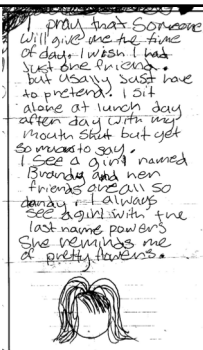 I pray that Someone
will give me the time
of day. I wish I had
Just one friend.
but usally Just have
to pretend. I sit
alone at lunch day
after day with my
mouth shut but yet
so much to say.
I see a girl named
Brandy and her
friends are all so
dandy. I always
see a girl with the
last name powers
She reminds me
of pretty flowers.